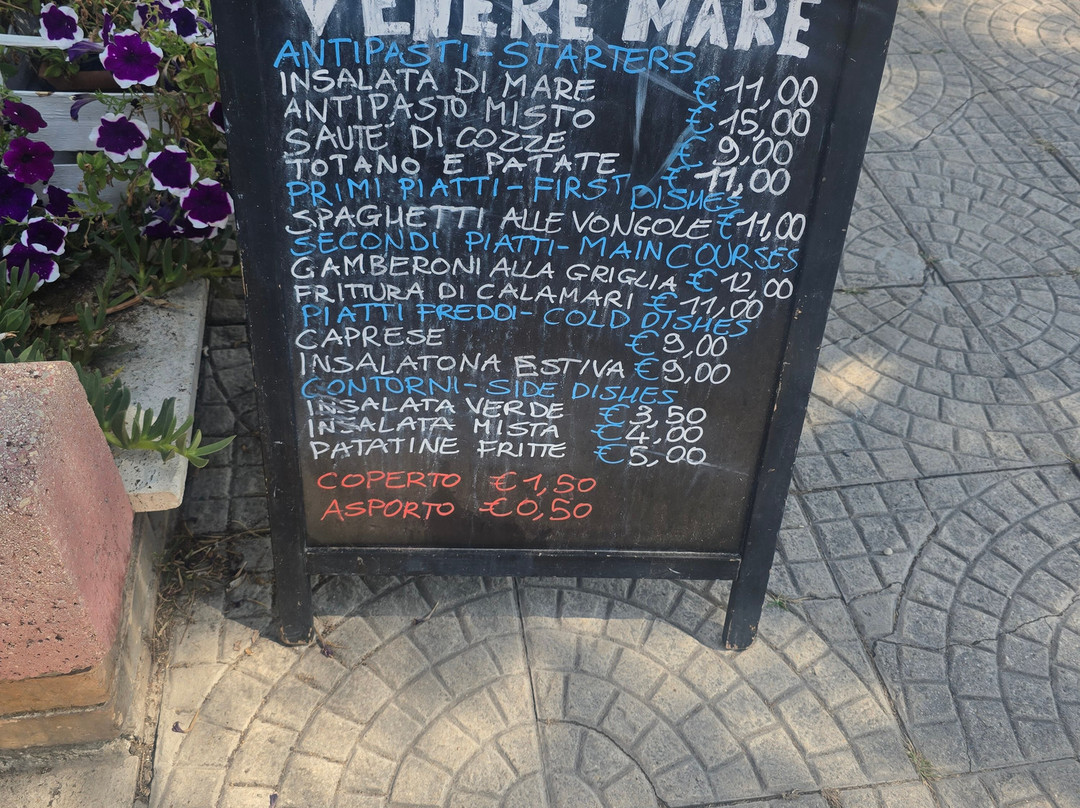 VENERE MARE
ANTIPASTI-STARTERS
INSALATA DI MARE € 11,00
ANTIPASTO MISTO € 15,00
SAUTE' DI COZZE € 9,00
TOTANO E PATATE € 11,00
PRIMI PIATTI-FIRST DISHES
SPAGHETTI ALLE VONGOLE € 11,00
SECONDI PIATTI-MAIN COURSES
GAMBERONI ALLA GRIGLIA € 12,00
FRITTURA DI CALAMARI € 11,00
PIATTI FREDDI-COLD DISHES
CAPRESE € 9,00
INSALATONA ESTIVA € 9,00
CONTORNI-SIDE DISHES
INSALATA VERDE € 3,50
INSALATA MISTA € 4,00
PATATINE FRITTE € 5,00
COPERTO € 1,50
ASPORTO € 0,50